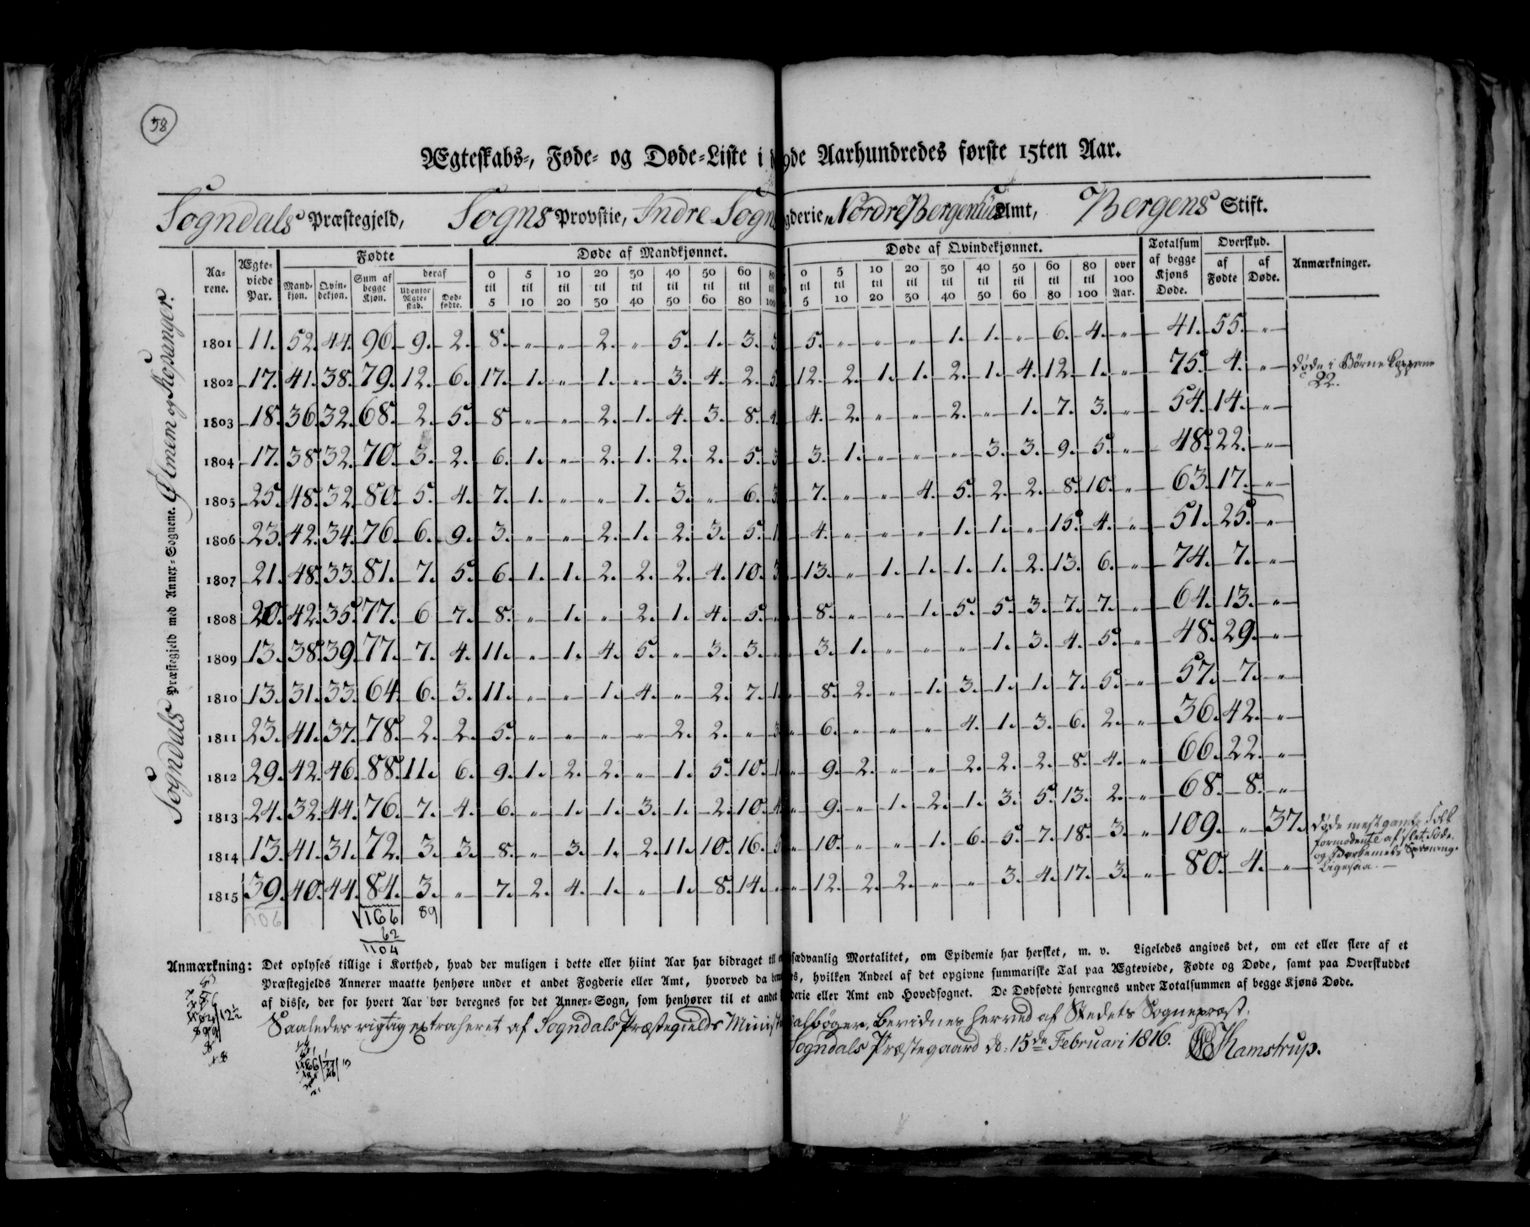 58
Ægteskabs-, Føde- og Døde-Liste i de Aarhundredes første 15ten Aar.
Sogndals Præstegjeld, Sogns Provstie, Indre Sogns gderie, Nordre Bergenhus Amt, Bergens Stift.
Sogndals Præstegjeld med Anner-Sognene.
Aarene. Ægteviede Par. Fødte Døde af Mandkjønnet. Døde af Qvindekjønnet. Totalsum af begge Kjøns Døde. Overskud. Anmærkninger.
Mandkjøn. Qvindekjøn. Sum af begge Kjøn. deraf Udenfor Ægteskab. Dødfødte. 0 til 5 5 til 10 10 til 20 20 til 30 30 til 40 40 til 50 50 til 60 60 til 80 80 til 100 0 til 5 5 til 10 10 til 20 20 til 30 30 til 40 40 til 50 50 til 60 60 til 80 80 til 100 over 100 Aar. af Fødte af Døde.
1801 11. 52. 44. 96. 9. 2. 8. " " 2. " 5. 1. 3. 5. " " " 1. 1. " 6. 4. " 41. 55. "
1802 17. 41. 38. 79. 12. 6. 17. 1. " 1. " 3. 4. 2. 5. 12. 2. 1. 1. 2. 1. 4. 12. 1. " 75. 4. " døde i Børne Kopperne 22.
1803 18. 36. 32. 68. 2. 5. 8 " " 2. 1. 4. 3. 8. 4. 4. 2. " " 2. " 1. 7. 3. " 54. 14. "
1804 17. 38. 32. 70. 3. 2. 6. 1. " 2. 1. 2. 2. 5. 3 3. 1. " " " 3. 3. 9. 5. " 48. 22. "
1805 25. 48. 32. 80. 5. 4. 7. 1. " " 1. 3. " 6. 3 7. " " 4. 5. 2. 2. 8. 10. " 63. 17. "
1806 23. 42. 34. 76. 6. 9. 3. " " 2. 1. 2. 3. 5. 1 4. " " " 1. 1. " 15. 4. " 51. 25. "
1807 21. 48. 33. 81. 7. 5. 6. 1. 1. 2. 2. 2. 4. 10. 3 13. " 1. 1. 1. 1. 2. 13. 6. " 74. 7. "
1808 20. 42. 35. 77. 6 7. 8. " 1. " 2. 1. 4. 5. " 8. " " 1. 5. 5. 3. 7. 7. " 64. 13. "
1809 13. 38. 39. 77. 7. 4. 11. " 1. 4. 5. " 3. 3. " 3. 1. " " " 1. 3. 4. 5. " 48. 29. "
1810 13. 31. 33. 64. 6. 3. 11. " " 1. 4. " 2. 7. 1 8. 2. " 1. 3. 1. 1. 7. 5. " 57. 7. "
1811 23. 41. 37. 78. 2. 2. 5. " " " " 2. 2. " 3 6. " " " 4. 1. 3. 6. 2. " 36. 42. "
1812 29. 42. 46. 88. 11. 6. 9. 1. 2. 2. " 1. 5. 10. 1 9. 2. " " 2. 2. 2. 8. 4. " 66. 22. "
1813 24. 32. 44. 76. 7. 4. 6. " 1. 1. 3. 1. 2. 10. 4 9. " 1. 2. 1. 3. 5. 13. 2. " 68. 8. "
1814 13. 41. 31. 72. 3. 3. 8. " 3. 1. 2. 11. 10. 16. 5 10. " " 1. 6. 5. 7. 18. 3. " 109. " 37. døde mest gamle Folk formodentl af slet Føde og Barkemels Spisning.
1815 39. 40. 44. 84. 3. " 7. 2. 4. 1. " 1. 8. 14. " 12. 2. 2. " " 3. 4. 17. 3. " 80. 4. " Ligesaa.
306 1166 89
62
1104
Anmærkning: Det oplyses tillige i Korthed, hvad der muligen i dette eller hiint Aar har bidraget til sædvanlig Mortalitet, om Epidemie har hersket, m. v. Ligeledes angives det, om eet eller flere af et
Præstegjelds Annerer maatte henhøre under et andet Fogderie eller Amt, hvorved da bemærkes, hvilken Andeel af det opgivne summariske Tal paa Ægteviede, Fødte og Døde, samt paa Overskuddet
af disse, der for hvert Aar bør beregnes for det Anner-Sogn, som henhører til et andet derie eller Amt end Hovedsognet. De Dødfødte henregnes under Totalsummen af begge Kjøns Døde.
Saaledes rigtig extraheret af Sogndals Præstegields Ministerialbøger, bevidnes herved af Stedets Sognepræst.
Sogndals Præstegaard d: 15de Februari 1816. Kamstrup.